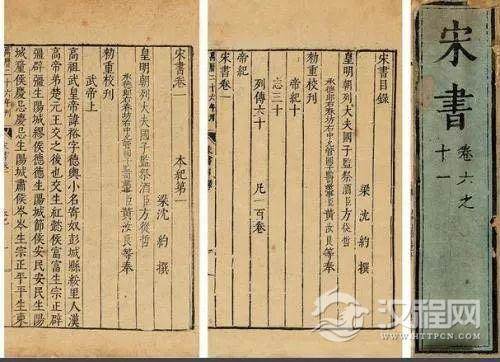 宋書
卷六之
十一
宋書目錄
梁沈約撰
皇明朝列大夫國子監祭酒臣方從哲
承德郎右春坊右中允管國子監司業事臣黃汝良等奉
勅重校刊
帝紀十
志三十
列傳六十
凡一百卷
帝紀
宋書卷一
宋書卷一
本紀第一
梁沈約撰
皇明朝列大夫國子監祭酒臣方從哲
承德郎右春坊右中允管國子監司業事臣黃汝良等奉
勅重校刊
武帝上
高祖武皇帝諱裕字德輿小名寄奴彭城縣綏里人漢
高帝弟楚元王交之後也交生紅懿侯富富生宗正辟
彊辟彊生陽城繆侯德德生陽城節侯安民安民生陽
城釐侯慶忌慶忌生陽城肅侯岑岑生宗正平平生東
萬曆二十六年刊
汉程网
HTTPCN.COM